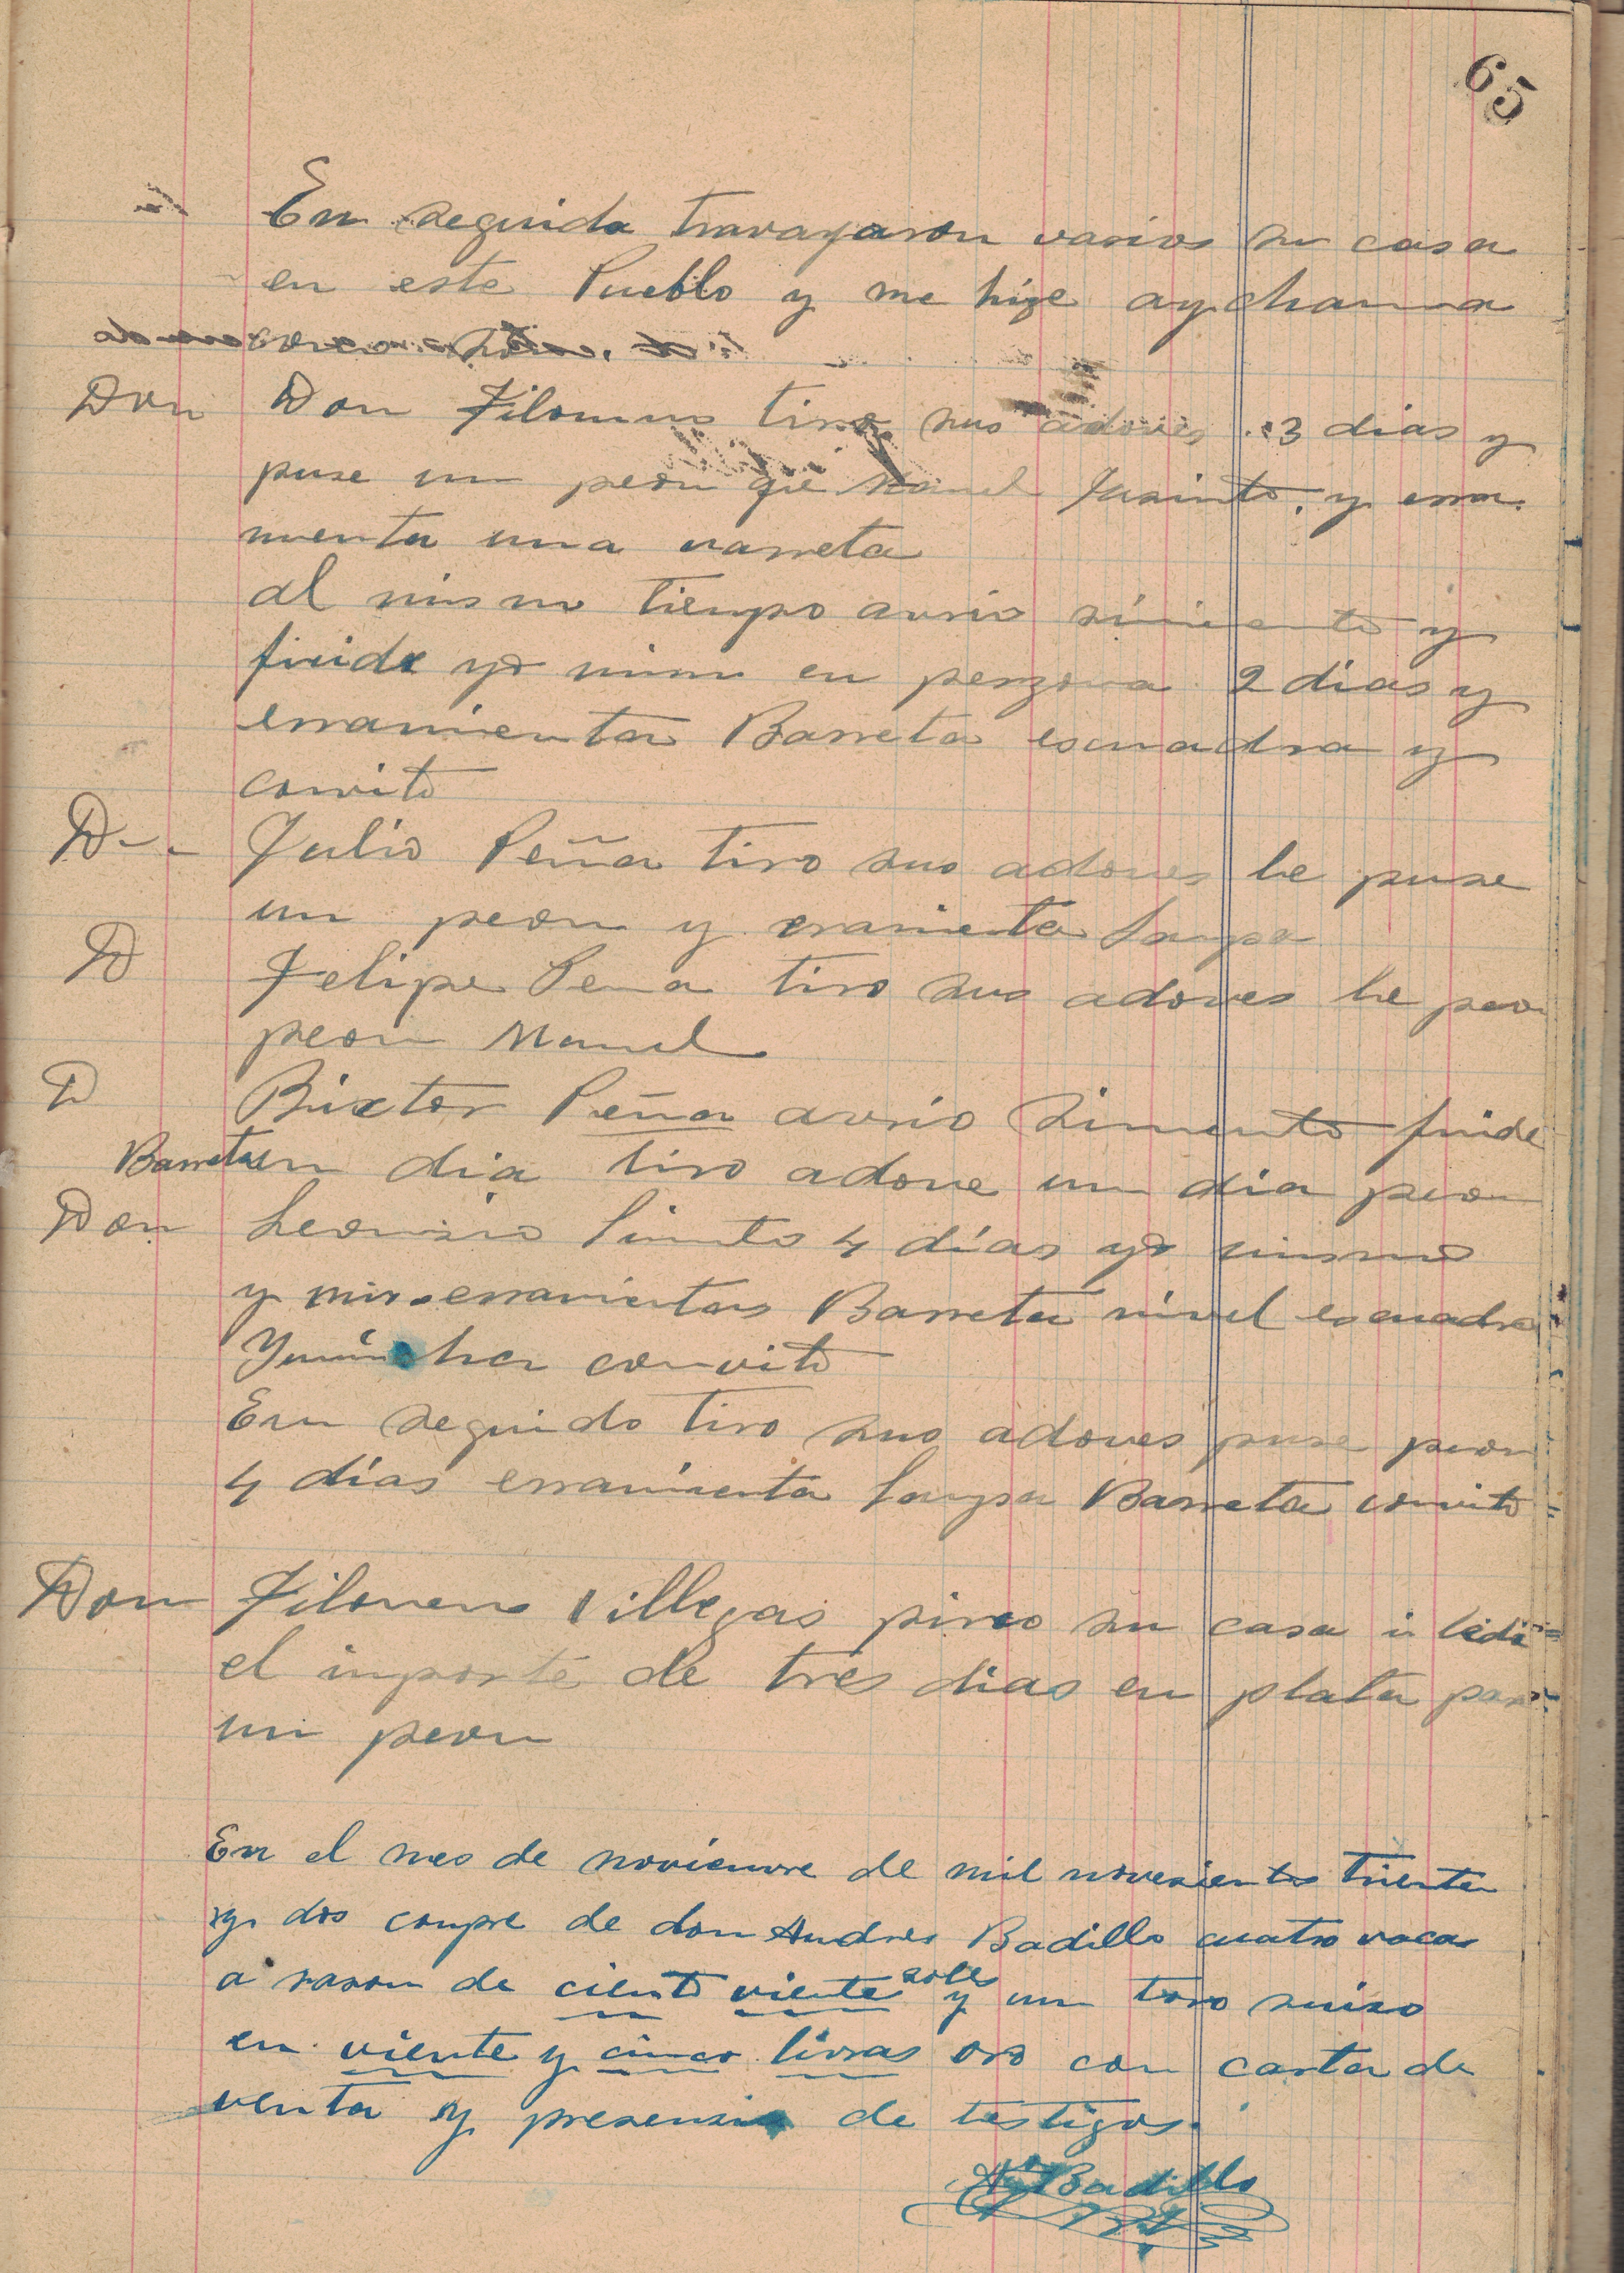 65
En seguida travajaron varios su casa
en este Pueblo y me hize aychama
Don Don Filomeno tiro sus adoves 3 dias y
puse un peon qe Manuel Jasinto, y erra
mienta una varreta
al mismo tiempo avrio simiento y
fuide yo mimo en perzona 2 dias y
erramienta Barreta escuadra y
convito
D-- Julio Peña tiro sus adoves le puse
un peon y eramienta lampa
D Felipe Pena tiro sus adoves le peon
peon Manuel
D Bixtor Peña avrio Simento fuide
Barreta un dia tiro adove un dia peon
Don Leonsio Simto 4 días yo mismo
y mis erramientas Barreta nivel escuadra
convito
En seguido tiro sus adoves puse peon
4 días erramienta lampa Barreta convito
Don Filomeno Villegas pirco su casa i ledi
el importe de tres dias en plata para
un peon
En el mes de noviemvre de mil novesientos trienta
y dos compre de don Andres Badillo cuatro vacas
a rason de ciento viente soles y un toro suizo
en viente y cinco livras oro con carta de
venta y presensia de testigos.
Badillo